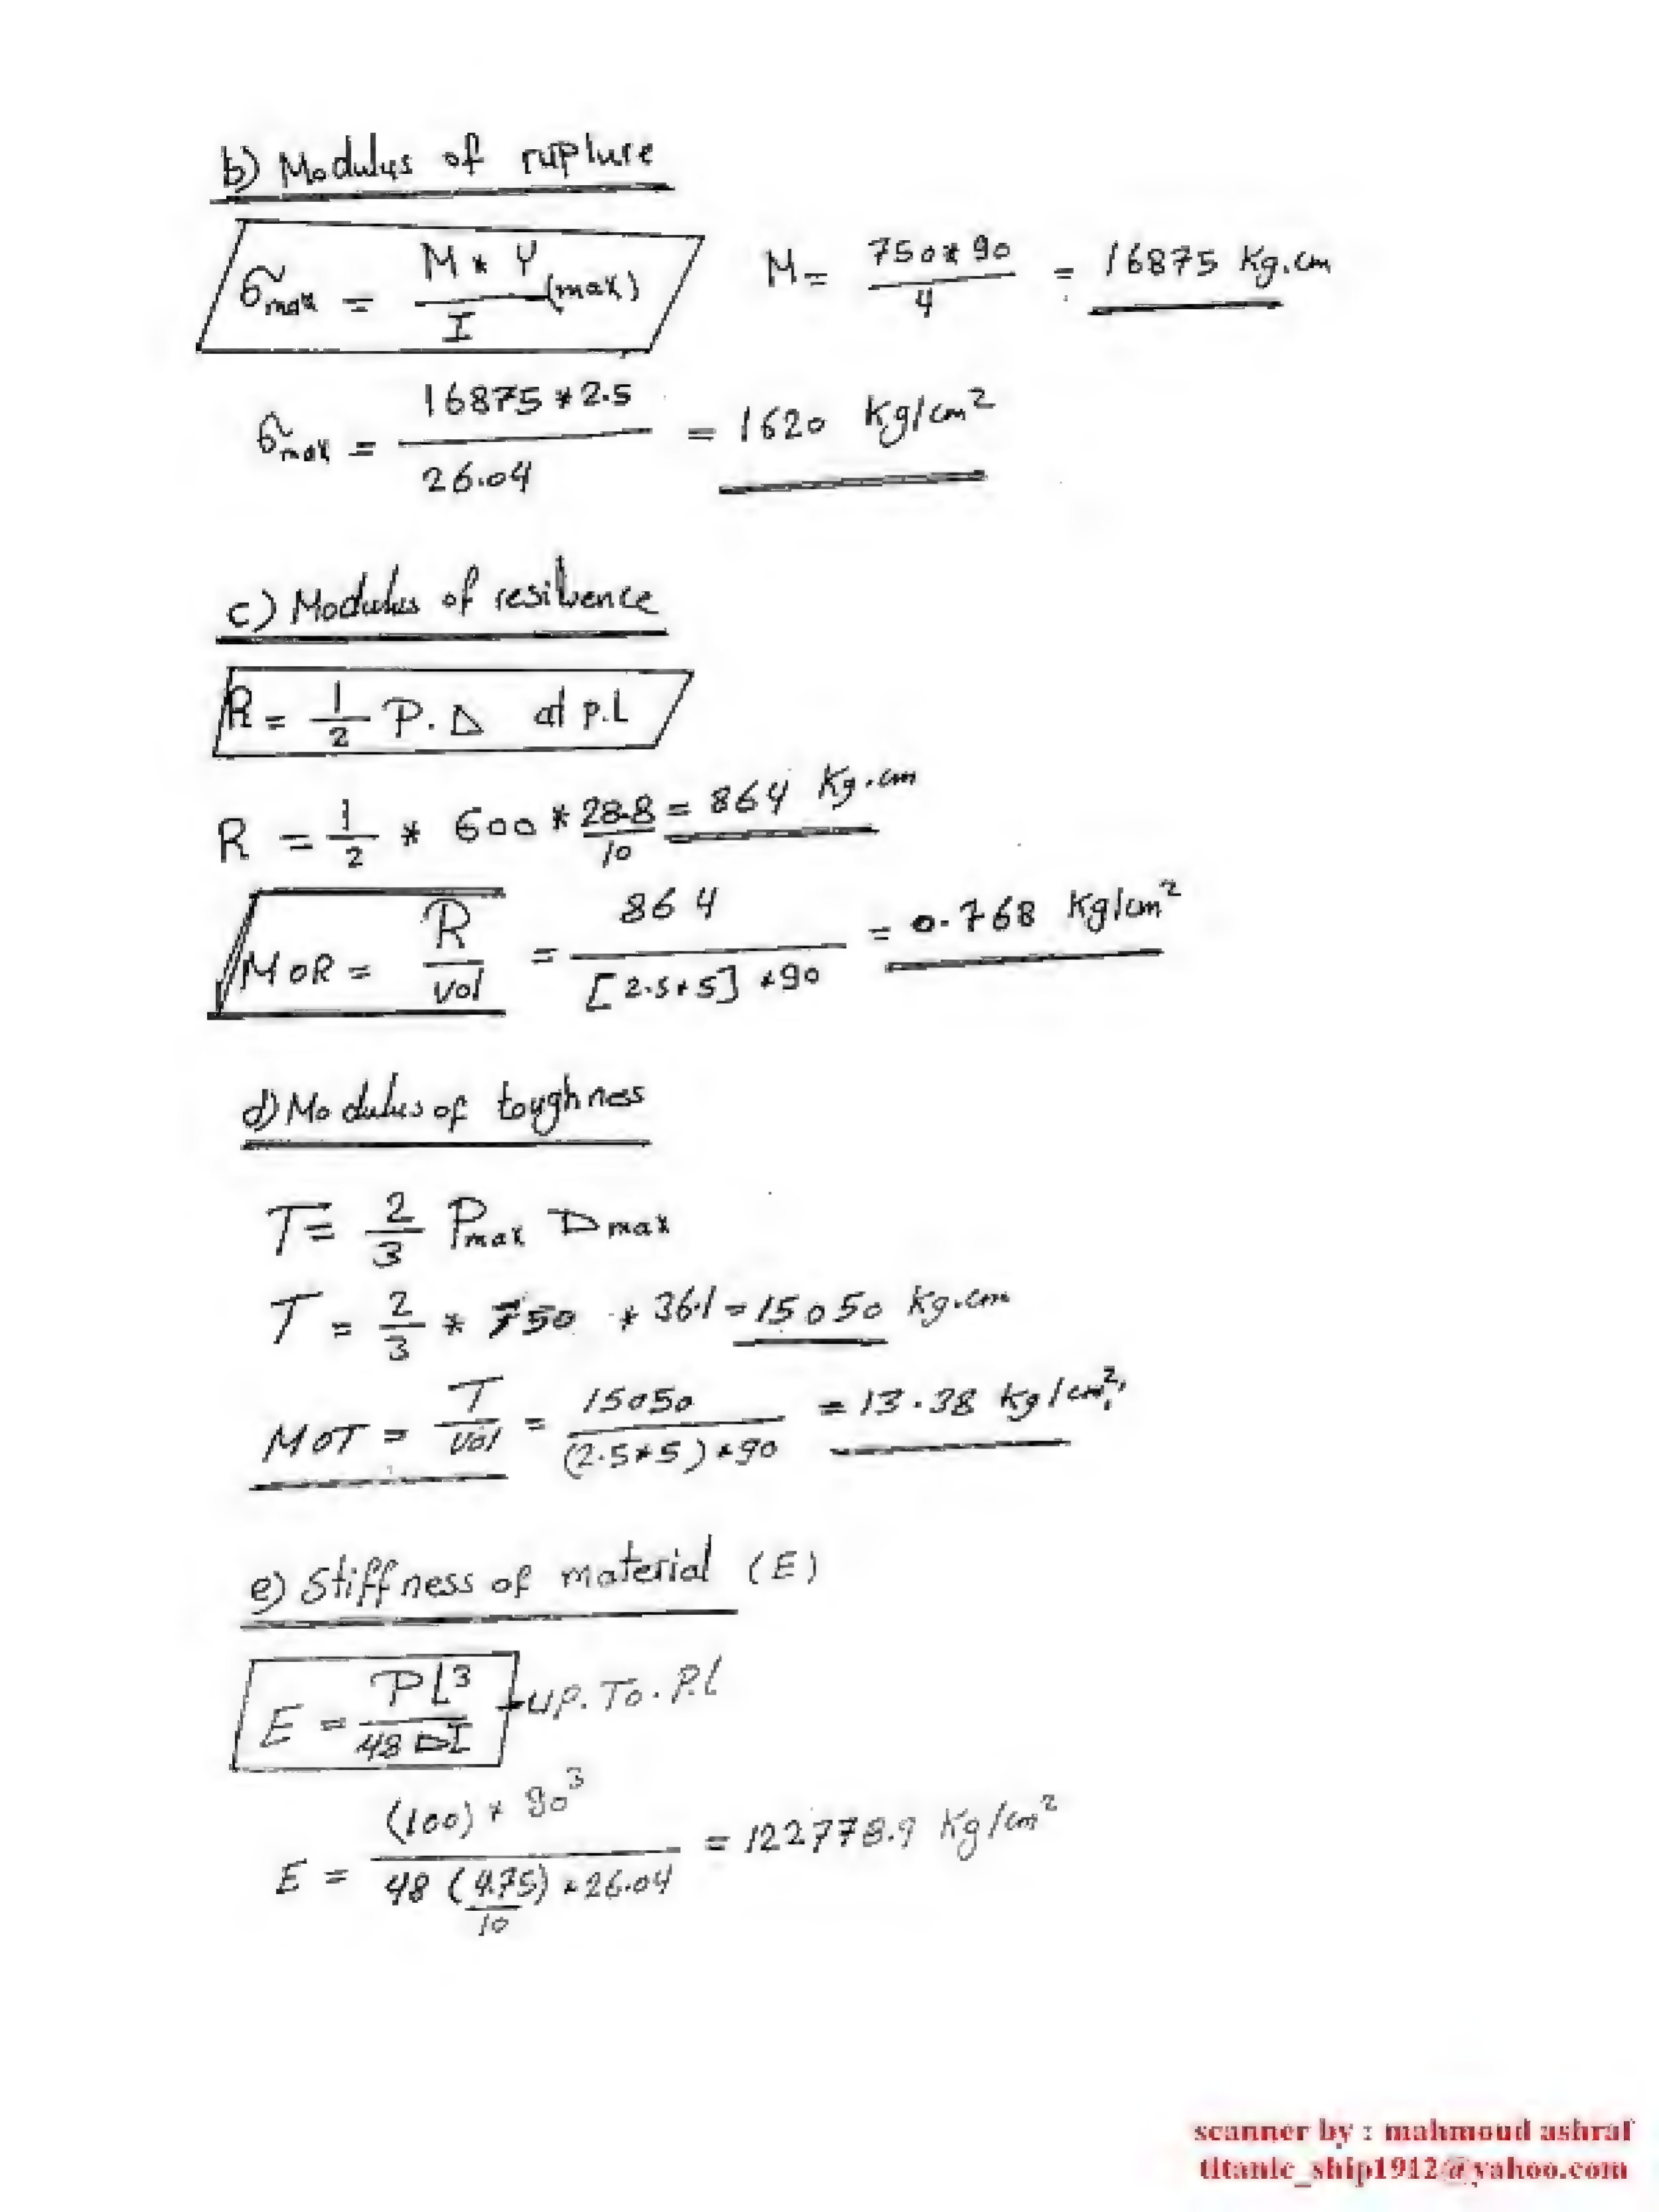 b) Modulus of rupture
σmax = M * Y(max) / I    M = 750 * 90 / 4 = 16875 Kg.cm
σmax = 16875 * 2.5 / 26.04 = 1620 Kg/cm²
c) Modulus of resilience
R = 1/2 P. Δ at p.L
R = 1/2 * 600 * 28.8/10 = 864 Kg.cm
MOR = R / vol = 864 / [2.5*5] *90 = 0.768 Kg/cm²
d) Modulus of toughness
T = 2/3 Pmax Δmax
T = 2/3 * 750 * 36.1 = 15050 Kg.cm
MOT = T / vol = 15050 / (2.5*5) *90 = 13.38 Kg/cm²
e) Stiffness of material (E)
E = PL³ / 48 Δ I UP. To. P.L
E = (100) * 90³ / 48 (4.75/10) * 26.04 = 122778.9 Kg/cm²
scanner by : mahmoud ashraf
titanic_ship1912@yahoo.com